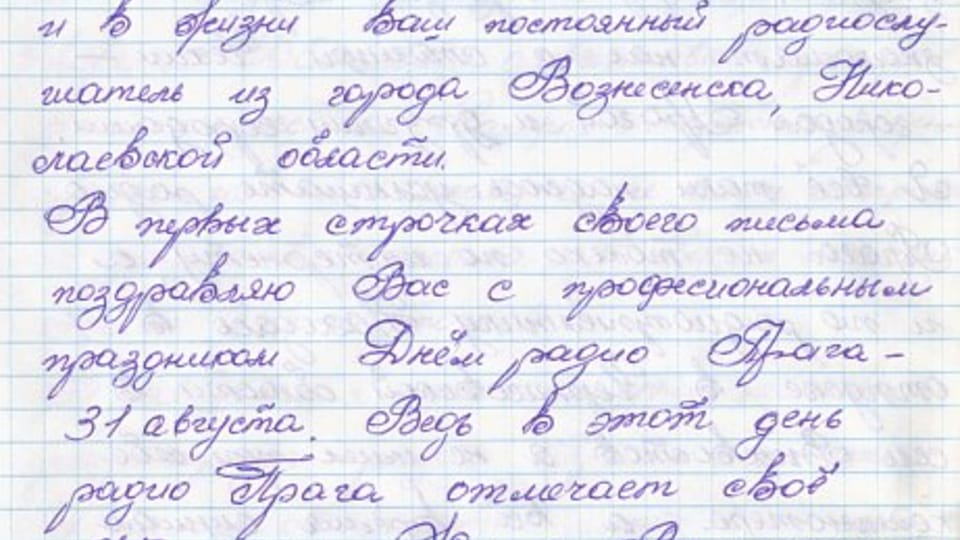 и в жизни ваш постоянный радиослу-
шатель из города Вознесенска, Нико-
лаевской области.
В первых строчках своего письма
поздравляю Вас с професиональным
праздником Днём радио Прага -
31 августа. Ведь в этот день
радио Прага отмечает своё